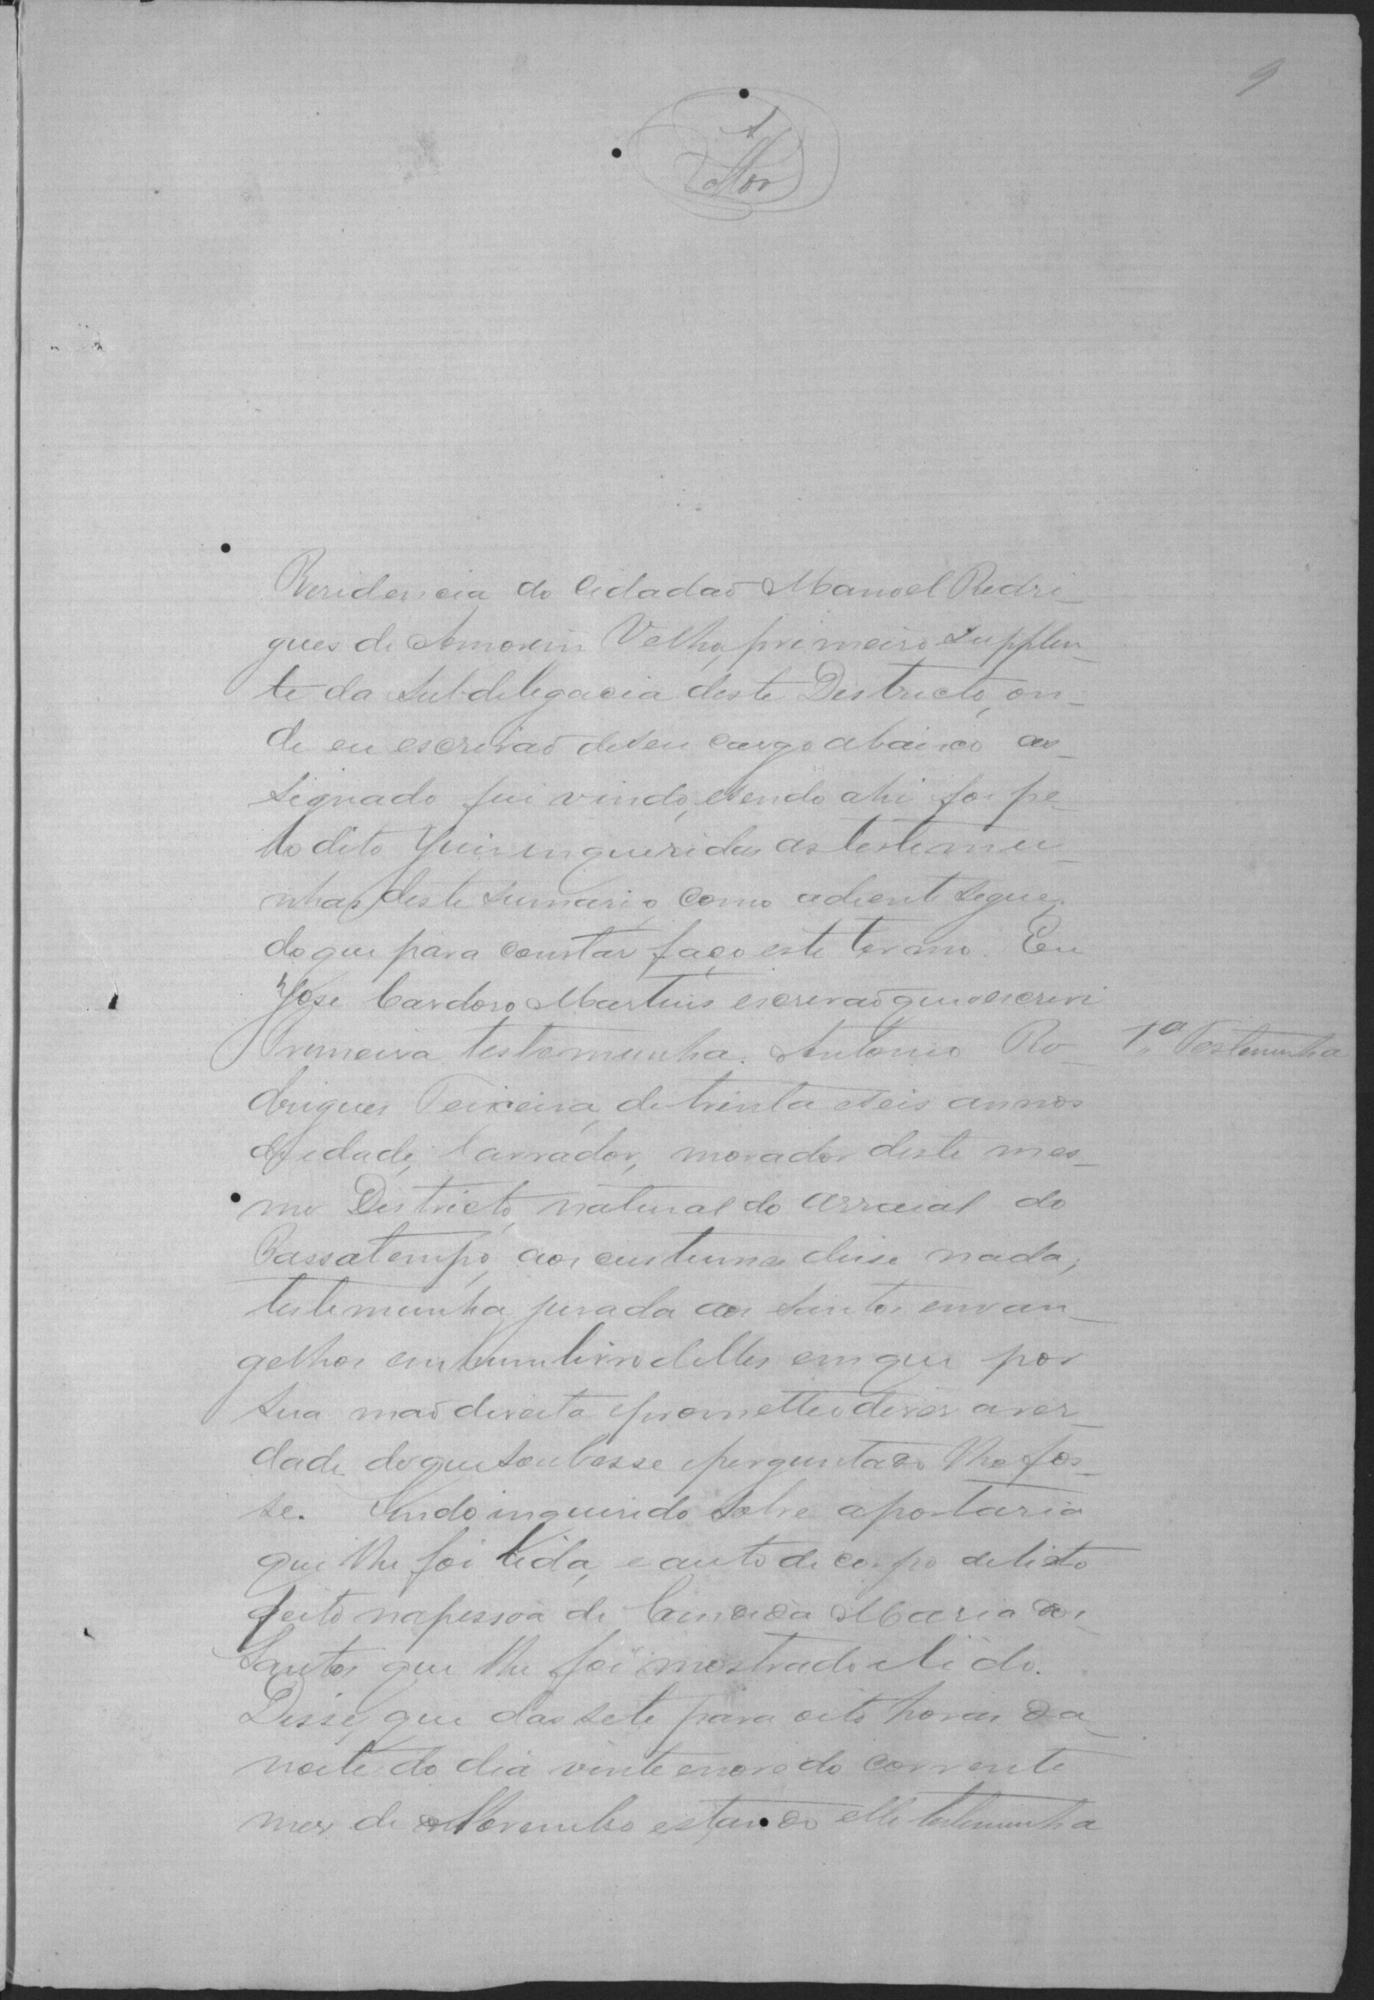 9
Residencia do Cidadaõ Manoel Rodri-
gues de Amorim Velho, primeiro Supplen-
te da Subdelegacia deste Districto, on-
de eu escrivaõ de seu cargo abaixo as-
signado fui vindo, e sendo ahi foi pe-
lo dito Juis inqueridas as testemu-
nhas deste sumario, como adiente segue,
do que para constar faço este termo. Eu
José Cardoso Martins escrivaõ que o escrivi
Primeira testemunha. Antonio Ro-
1ª Testemunha
drigues Teixeira, de trinta e seis annos
de idade, lavrador, morador deste mes-
mo Districto, natural do arraial do
Passatempo, aos custumes disse nada,
testemunha jurada aos Santos envan-
gelhos em hum livro delles em que por
sua maõ direita e prometteo diser a ver-
dade do que soubesse e perguntado lhe fos-
se. Sendo inquirido sobre a portaria
que lhe foi lida, e auto de corpo delicto
feito na pessoa de Candida Maria dos
Santos que lhe foi mostrado e lido.
Disse, que das sete para oito horas da
noite do dia vinte e nove do corrente
mes de Novembro estando elle testemunha